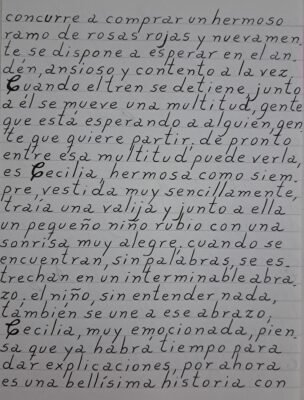 concurre a comprar un hermoso
ramo de rosas rojas y nuevamen
te se dispone a esperar en el an-
dén, ansioso y contento a la vez.
Cuando el tren se detiene, junto
a él se mueve una multitud, gente
que está esperando a alguien, gen
te que quiere partir, de pronto
entre esa multitud puede verla,
es Cecilia, hermosa como siem-
pre, vestida muy sencillamente,
traía una valija y junto a ella
un pequeño niño rubio con una
sonrisa muy alegre, cuando se
encuentran, sin palabras, se es-
trechan en un interminable abra-
zo, el niño, sin entender nada,
también se une a ese abrazo,
Cecilia, muy emocionada, pien-
sa que ya habrá tiempo para
dar explicaciones, por ahora
es una bellísima historia con